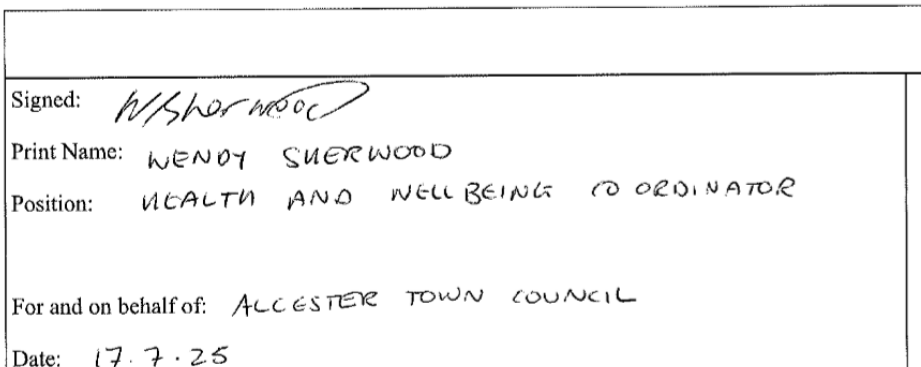 Signed: W Sherwood
Print Name: WENDY SHERWOOD
Position: HEALTH AND WELLBEING CO ORDINATOR
For and on behalf of: ALCESTER TOWN COUNCIL
Date: 17.7.25